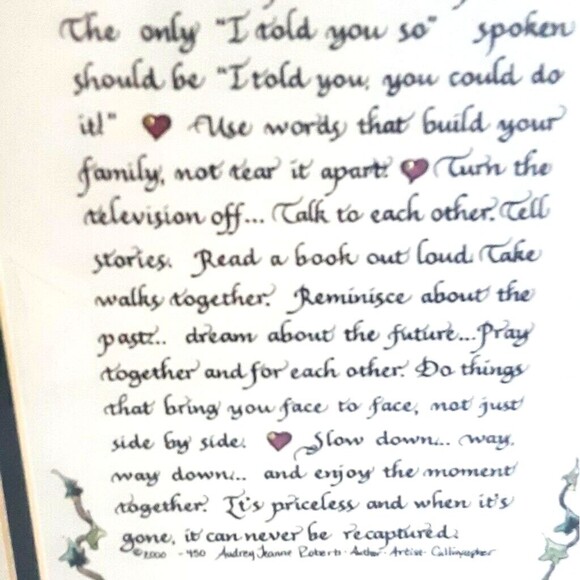 The only "I told you so" spoken
should be "I told you, you could do
it!" Use words that build your
family, not tear it apart. Turn the
television off... Talk to each other. Tell
stories. Read a book out loud. Take
walks together. Reminisce about the
past... dream about the future... Pray
together and for each other. Do things
that bring you face to face, not just
side by side. Slow down... way,
way down... and enjoy the moment
together. It's priceless and when it's
gone, it can never be recaptured.
©2000 - 450 Audrey Jeanne Roberts · Author · Artist · Calligrapher